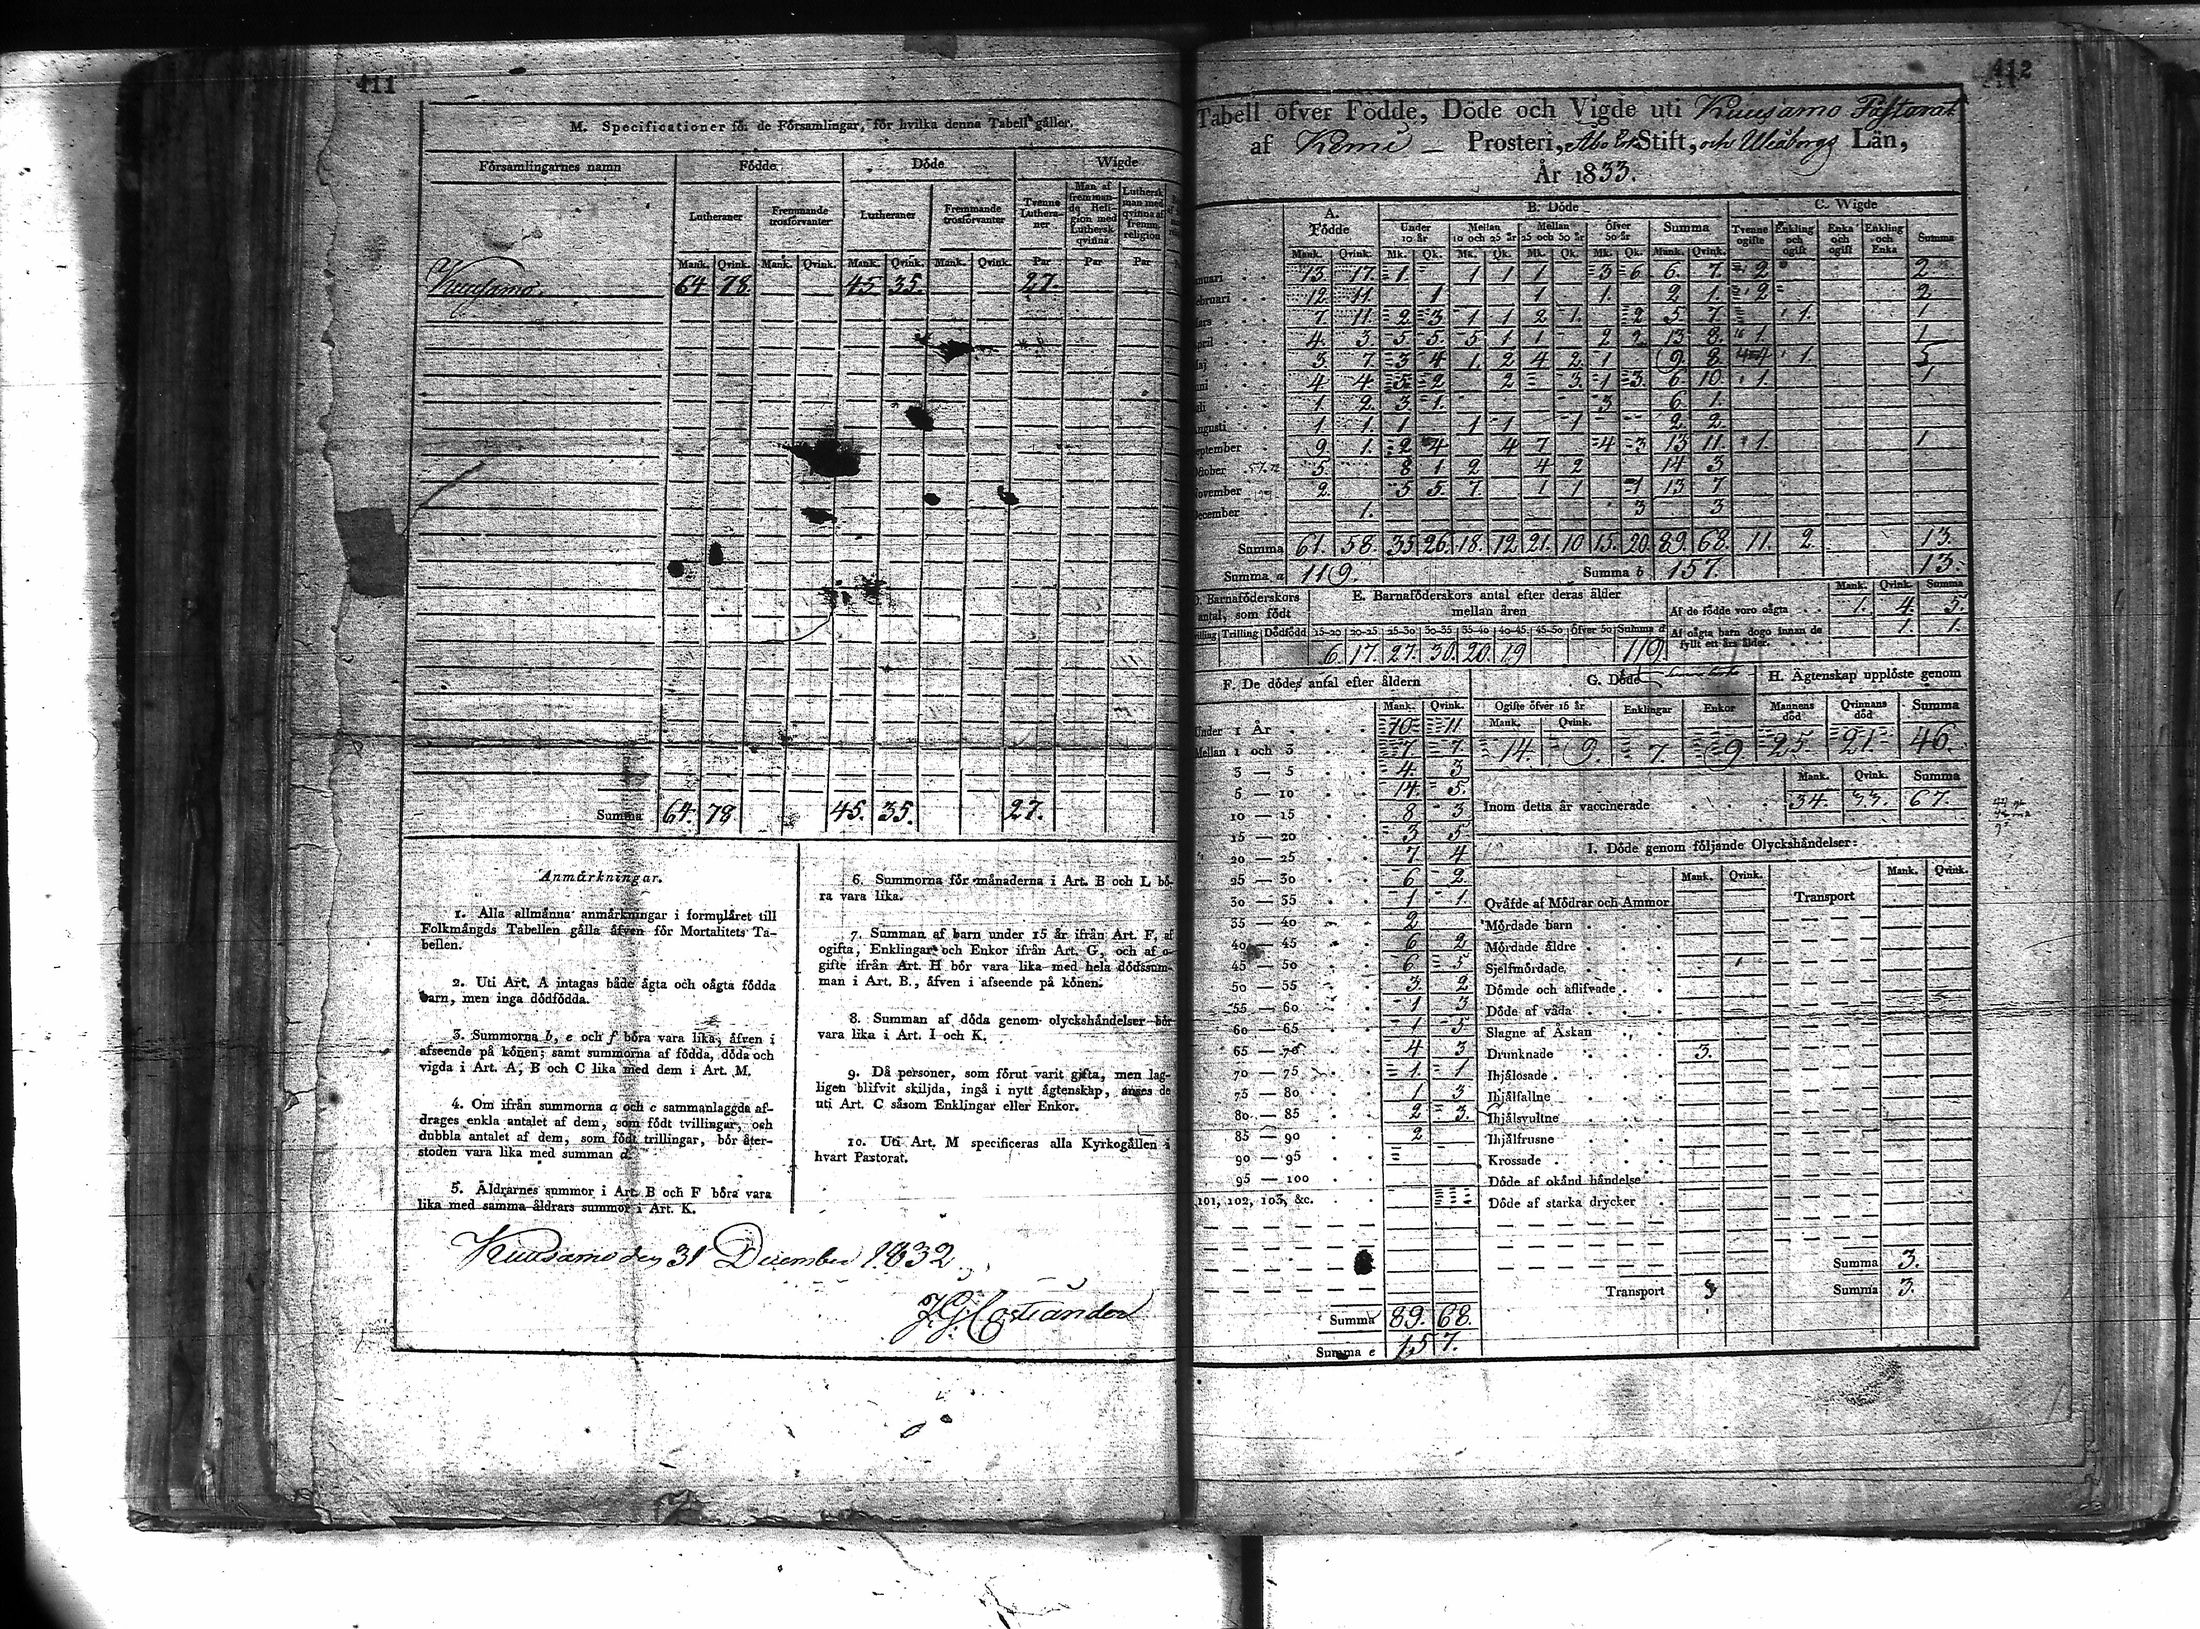 411
M. Specificationer för de Församlingar, för hvilka denna Tabell gäller.
Församlingarnes namn Födde Döde Wigde
Lutheraner Fremmande trosförvanter Lutheraner Fremmande trosförvanter Tvenne Lutheraner Man af fremmande Religion med Luthersk qvinna Luthersk man med qvinna af fremm. religion
Mank. Qvink. Mank. Qvink. Mank. Qvink. Mank. Qvink. Par Par Par
Kuusamo. 64 78. 45 35. 27.
Summa 64. 78 45. 35. 27.
Anmärkningar.
1. Alla allmänna anmärkningar i formuläret till
Folkmängds Tabellen gälla äfven för Mortalitets Ta-
bellen.
2. Uti Art. A intagas både ägta och oägta födda
barn, men inga dödfödda.
3. Summorna b, e och f böra vara lika, äfven i
afseende på könen; samt summorna af födda, döda och
vigda i Art. A, B och C lika med dem i Art. M.
4. Om ifrån summorna a och c sammanlaggda af-
drages enkla antalet af dem, som födt tvillingar, och
dubbla antalet af dem, som födt trillingar, bör åter-
stoden vara lika med summan d.
5. Åldrarnes summor i Art. B och F böra vara
lika med samma åldrars summor i Art. K.
6. Summorna för månaderna i Art. B och L bö-
ra vara lika.
7. Summan af barn under 15 år ifrån Art. F, af
ogifta, Enklingar och Enkor ifrån Art. G, och af o-
gifte ifrån Art. H bör vara lika med hela dödssum-
man i Art. B., äfven i afseende på könen.
8. Summan af döda genom olyckshändelser bör
vara lika i Art. I och K.
9. Då personer, som förut varit gifta, men lag-
ligen blifvit skiljda, ingå i nytt ägtenskap, anses de
uti Art. C såsom Enklingar eller Enkor.
10. Uti Art. M specificeras alla Kyrkogällen i
hvart Pastorat.
Kuusamo den 31 December 1832
412
Tabell öfver Födde, Döde och Vigde uti Kuusamo Pastorat
af Kemi — Prosteri, Åbo Erk Stift, och Uleåborgs Län,
År 1833.
A. Födde B. Döde C. Wigde
Under 10 år Mellan 10 och 25 år Mellan 25 och 50 år Öfver 50 år Summa Tvenne ogifte Enkling och ogift Enka och ogift Enkling och Enka Summa
Mank. Qvink. Mk. Qk. Mk. Qk. Mk. Qk. Mk. Qk. Mank. Qvink.
nuari 13 17. 1 1 1 1 3 6 6. 7. 2 2
ebruari 12 11. 1 1 1. 2 1. 2 2
ars 7. 11 2 3 1 1 2 1. 2 5 7. 1. 1
april 4. 3. 5 5. 5 1 1 2 2 13 8. 1. 1
aj 3. 7. 3 4 1. 2 4 2 1 9. 8. 4 1. 5
uni 4 4. 5 2 2 3. 1 3. 6. 10. 1. 1
uli 1. 2. 3 1. 3 6 1.
ugusti 1. 1. 1 1 1 1 2 2
eptember 9 1. 2 4 4 7 4 3 13 11. 1. 1
Oktober 5. 8 1 2 4 2 14 3
November 2. 5 5. 7. 1 1 1 13 7
December 1. 3 3
Summa 61. 58. 35. 26. 18. 12. 21. 10 15. 20. 89. 68. 11. 2. 13.
Summa a 119. Summa b 157. 13.
D. Barnaföderskors antal, som födt E. Barnaföderskors antal efter deras ålder mellan åren Mank. Qvink. Summa
Af de födde voro oägta 1. 4. 5.
villing Trilling Dödfödd 15-20 20-25 25-30 30-35 35-40 40-45 45-50 Öfver 50 Summa d Af oägta barn dogo innan de fyllt en års ålder. 1. 1.
6. 17. 27. 30. 20. 19 119.
F. De dödes antal efter åldern G. Döde H. Ägtenskap upplöste genom
Mank. Qvink. Ogifte öfver 15 år Mank. Qvink. Enklingar Enkor Mannens död Qvinnans död Summa
Under 1 År 10 11
Mellan 1 och 3 7 7. 14. 9. 7. 9 25. 21 46.
3 — 5 4. 3
5 — 10 14. 5.
10 — 15 8 3
15 — 20 3 5
20 — 25 7. 4
25 — 30 6 2
30 — 35 1 1
35 — 40 2
40 — 45 6 2
45 — 50 6. 5
50 — 55 3. 2
55 — 60 1 3
60 — 65 1 5
65 — 70 4 3
70 — 75 1. 1
75 — 80 1 3
80 — 85 2 3.
85 — 90 2
90 — 95
95 — 100
101, 102, 103, &c.
Summa 89. 68.
Summa e 157.
Mank. Qvink. Summa
Inom detta år vaccinerade 34. 33. 67.
I. Döde genom följande Olyckshändelser:
Mank. Qvink. Mank. Qvink.
Qväfde af Mödrar och Ammor Transport
Mördade barn
Mördade äldre
Sjelfmördade
Dömde och aflifvade
Döde af våda
Slagne af Åskan
Drunknade 3.
Ihjälosade
Ihjälfallne
Ihjälsvultne
Ihjälfrusne
Krossade
Döde af okänd händelse
Döde af starka drycker
Summa 3.
Transport 3 Summa 3.